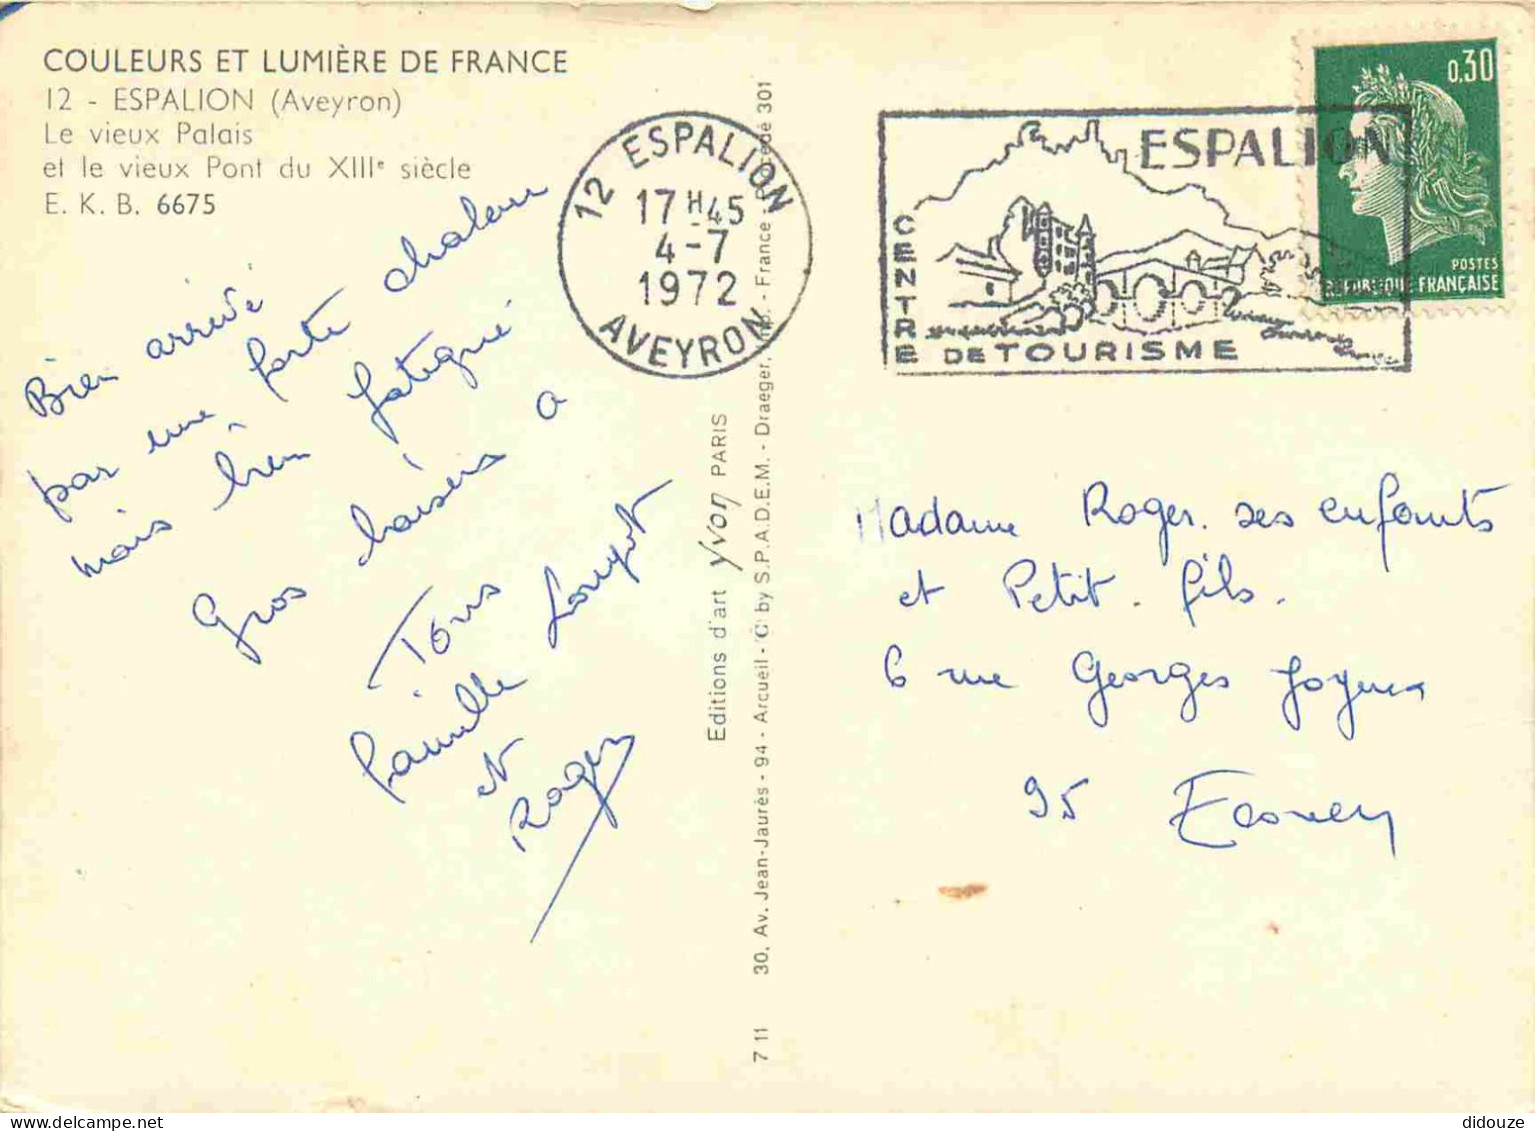 COULEURS ET LUMIÈRE DE FRANCE
12 - ESPALION (Aveyron)
Le vieux Palais
et le vieux Pont du XIIIe siècle
E. K. B. 6675
Bien arrivé
par une forte chaleur
mais bien fatigué
Gros baisers à
Tous
famille
et
Roger
12 ESPALION
17 H 45
4-7
1972
AVEYRON
Editions d'art yvon PARIS
30, Av. Jean-Jaurès - 94 - Arcueil - (C) by S.P.A.D.E.M. - Draeger, Imp. - France - 301
7 11
ESPALION
CENTRE
DE TOURISME
0,30
POSTES
REPUBLIQUE FRANÇAISE
Madame Roger. ses enfants
et Petit. fils.
6 rue Georges Joyeux
95
didouze